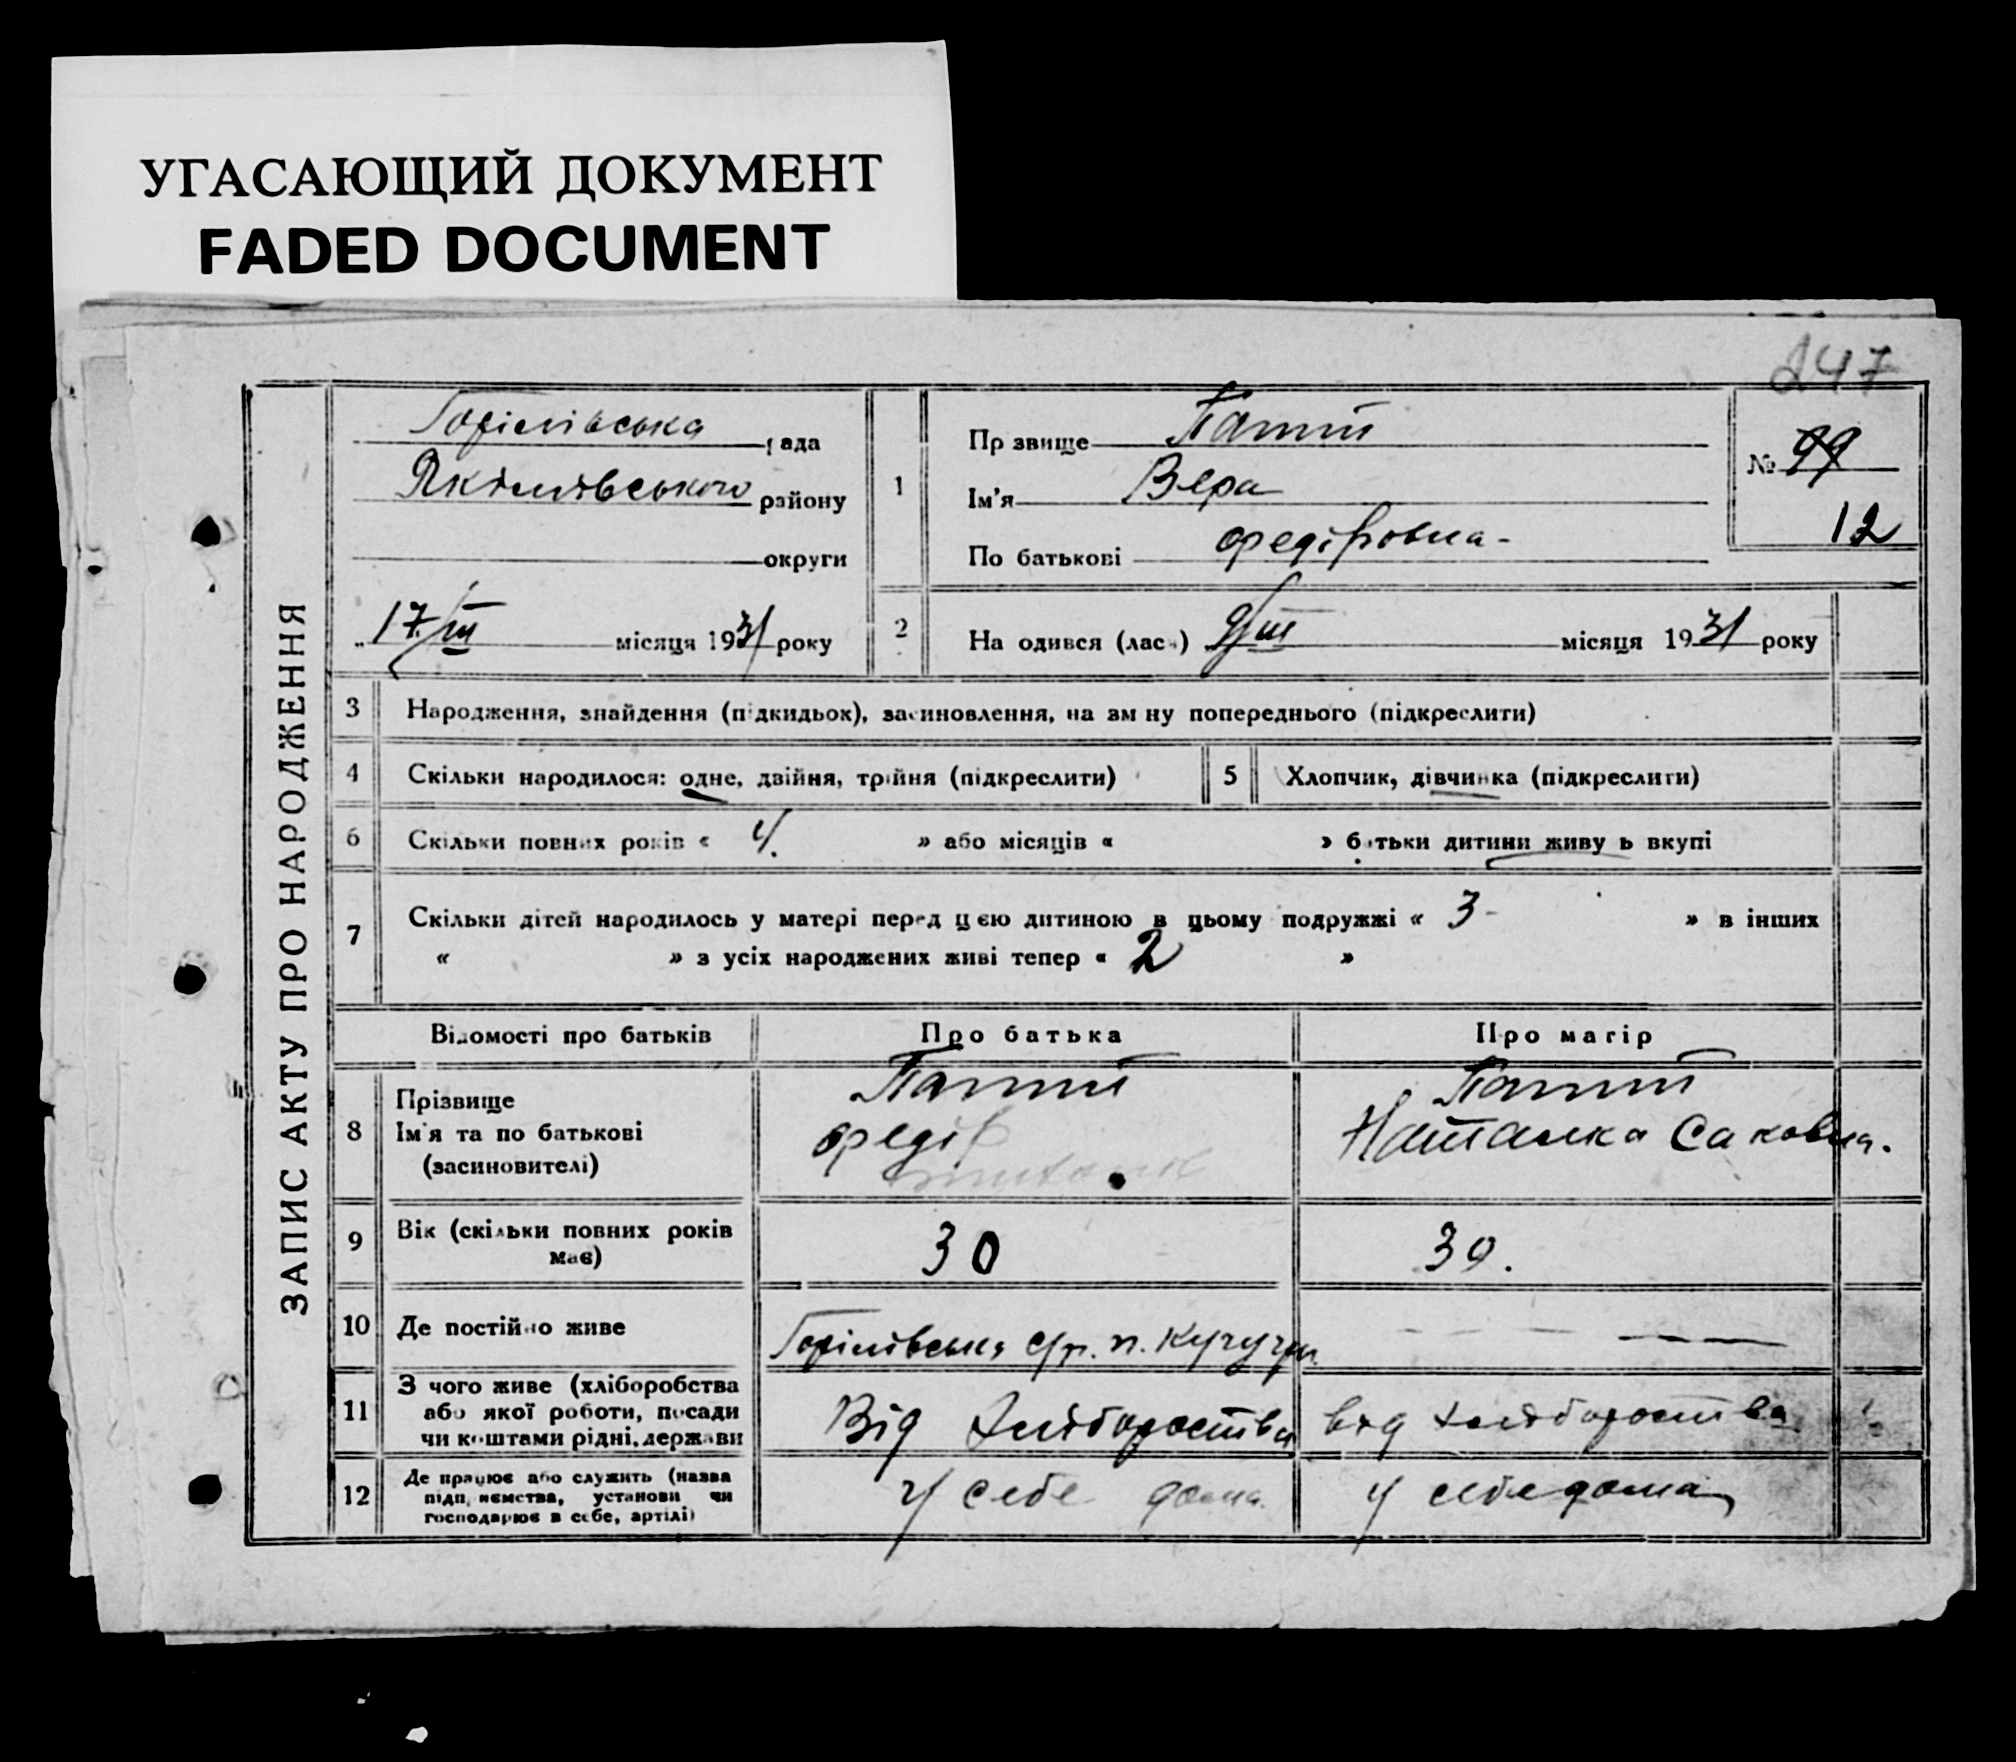 УГАСАЮЩИЙ ДОКУМЕНТ
FADED DOCUMENT
247
ЗАПИС АКТУ ПРО НАРОДЖЕННЯ
рада
району
округи
17/III місяця 1931 року
1
Прзвище
Ім'я Вера
По батькові Федіровна-
№ 99
12
2
На одився (лась) 9/III місяця 1931 року
3 Народження, знайдення (підкидьок), засиновлення, на змну попереднього (підкреслити)
4 Скільки народилося: одне, двійня, трійня (підкреслити)
5 Хлопчик, дівчинка (підкреслити)
6 Скільки повних років « 4. » або місяців « » батьки дитини живуь вкупі
7 Скільки дітей народилось у матері перед цєю дитиною в цьому подружжі « 3- » в інших
« » з усіх народжених живі тепер « 2 »
Відомості про батьків Про батька Про матір
8 Прізвище
Ім'я та по батькові Федір Наталка Саковна.
(засиновителі)
9 Вік (скільки повних років має) 30 30.
10 Де постійно живе с/р. п.
11 З чого живе (хліборобства
або якої роботи, посади Від від
чи коштами рідні, держави
12 Де працює або служить (назва
підпиємства, установи чи у себе дома. у себе дома
господарює в себе, артілі)